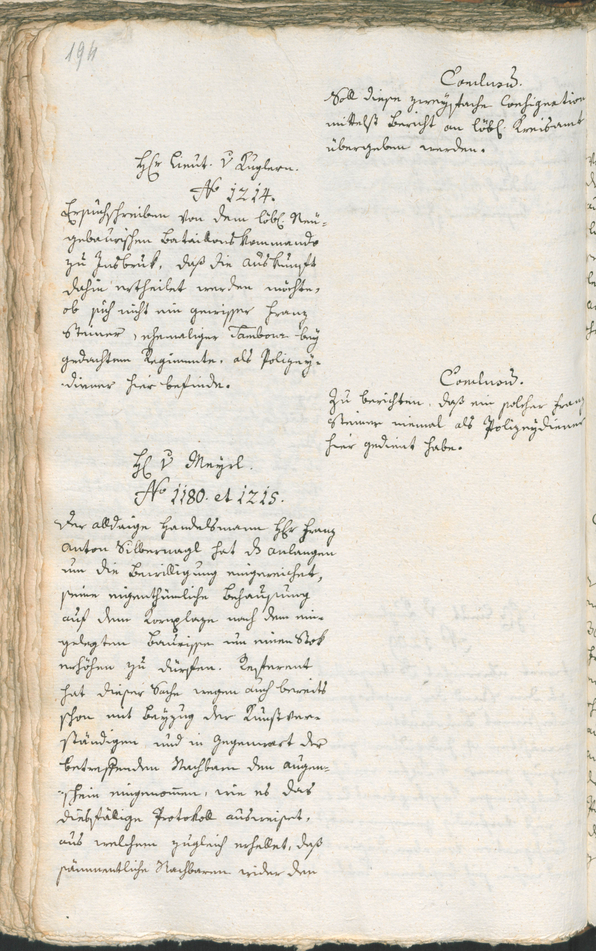 194
Conclusum.
Soll diese zweyfache Consignation
mittelst Bericht an löbl. Kreisamt
übergeben werden.
Hr Lieut. v Kuglern.
No 1214.
Ersuchschreiben von dem löbl. Neü-
gebaurischen Bataillonskommando
zu Insbruk, daß die Auskunft
dahin ertheilet werden möchte,
ob sich nicht ein gewisser Franz
Steiner, ehemaliger Tambour bey
gedachtem Regimente, als Polizey-
diener hier befinde.
Conclusum.
Zu berichten, daß ein solcher Franz
Steiner niemal als Polizeydiener
hier gedient habe.
H v Meyrl.
No 1180. et 1215.
Der alldaige Handelsmann Hr Franz
Anton Silbernagl hat ds Anlangen
um die Bewilligung eingereichet,
seine eigenthümliche Behausung
auf dem Kornplaze nach dem ein-
gelegten Baurisse um einen Stok
erhöhen zu dürfen. Referent
hat dieser Sache wegen auch bereits
schon mit Beyzug der Kunstver-
ständigen und in Gegenwart der
betreffenden Nachbarn den Augen-
schein eingenommen, wie es das
diesfälige Protokoll ausweiset,
aus welchem zugleich erhellet, daß
sämmentliche Nachbaren wider den